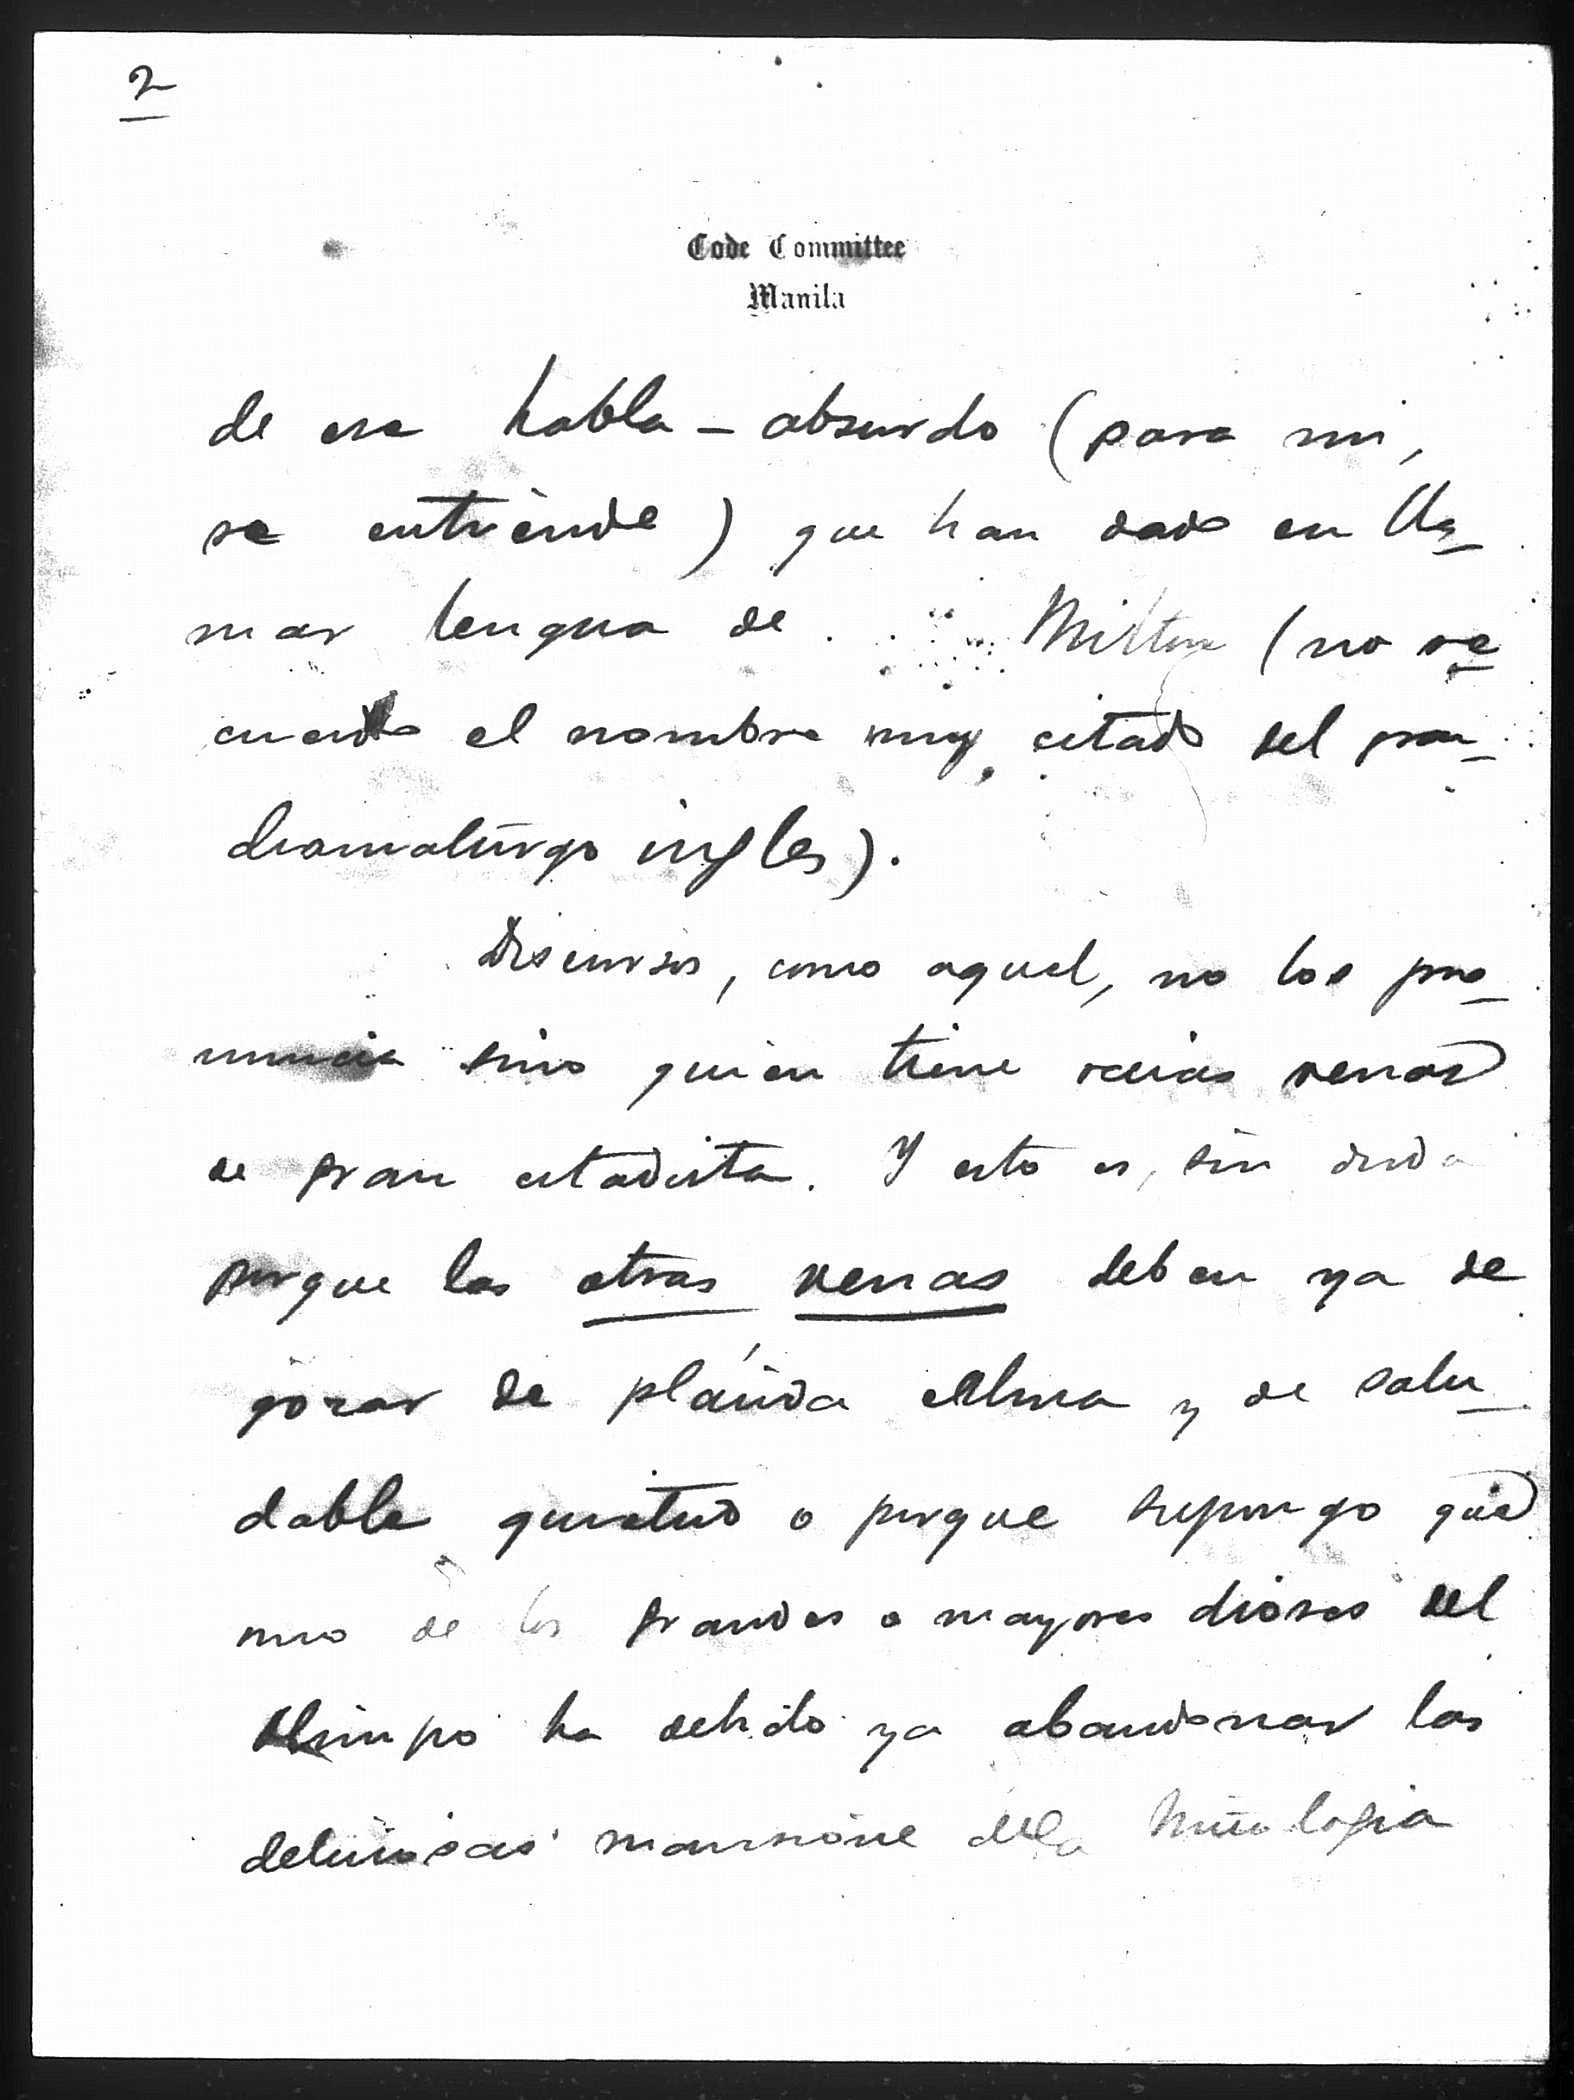 2
Code Committee
Manila
de ese habla – absurdo (para mi,
se entiende) que han dado en lla-
mar lengua de . . . . Milton (no re-
cuerdo el nombre muy citado del gran
dramaturgo ingles).
Discursos, como aquel, no los pro-
nuncia sino quien tiene venas
de gran estadista. Y esto es, sin duda
porque las otras venas deben ya de
gozar de plácida calma y de salu-
dable quietud o porque supongo que
uno de los grandes o mayores dioses del
Olimpo ha debido ya abandonar las
deliciosas mansione de la